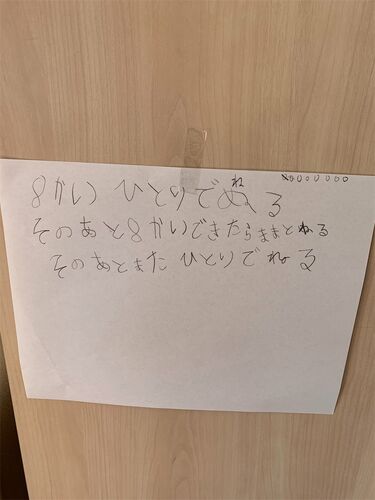 8かい ひとりでねる
そのあと8かいできたらままとねる
そのあとまた ひとりでねる